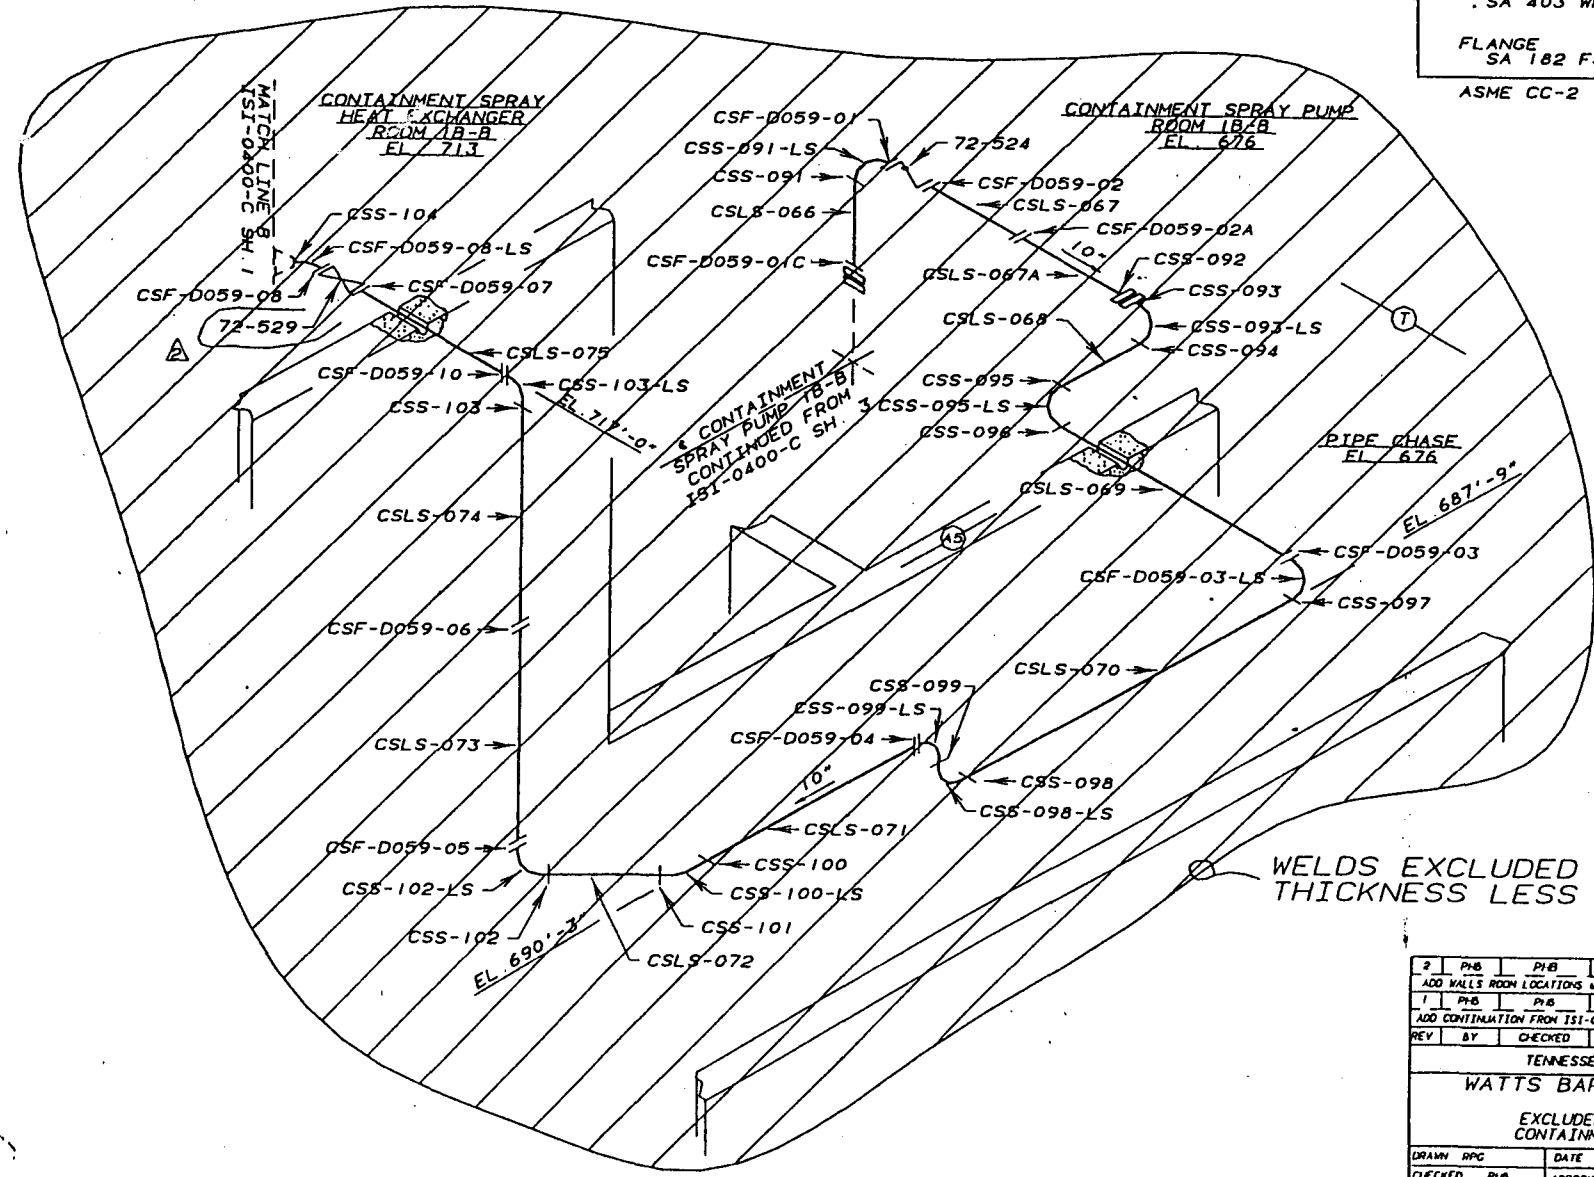 . SA 403 W
FLANGE
SA 182 F
ASME CC-2
MATCH LINE B
ISI-0400-C SH. 1
CONTAINMENT SPRAY
HEAT EXCHANGER
ROOM 1B-B
EL 713
CONTAINMENT SPRAY PUMP
ROOM 1B-B
EL. 676
CSF-D059-01
CSS-091-LS
72-524
CSS-091
CSF-D059-02
CSLS-066
CSLS-067
CSS-104
CSF-D059-02A
CSF-D059-08-LS
10"
CSF-D059-01C
CSS-092
CSLS-067A
CSF-D059-07
CSS-093
CSF-D059-08
72-529
2
CSLS-068
CSS-093-LS
T
CSLS-075
CSS-094
CSF-D059-10
CSS-103-LS
CSS-095
CSS-103
EL. 717'-0"
CSS-095-LS
3
CSS-096
℄ CONTAINMENT
SPRAY PUMP 1B-B
CONTINUED FROM
ISI-0400-C SH.
PIPE CHASE
EL 676
CSLS-069
CSLS-074
EL. 687'-9"
A5
CSF-D059-03
CSF-D059-03-LS
CSS-097
CSF-D059-06
CSLS-070
CSS-099
CSS-099-LS
CSF-D059-04
CSLS-073
10"
CSS-098
CSS-098-LS
CSLS-071
CSF-D059-05
CSS-100
CSS-102-LS
CSS-100-LS
CSS-101
CSS-102
EL. 690'-3"
CSLS-072
WELDS EXCLUDED
THICKNESS LESS
2 PHB PHB
ADD WALLS ROOM LOCATIONS
1 PHB PHB
ADD CONTINUATION FROM ISI-
REV BY CHECKED
TENNESSE
WATTS BA
EXCLUDE
CONTAIN
DRAWN RPG DATE
CHECKED PHB